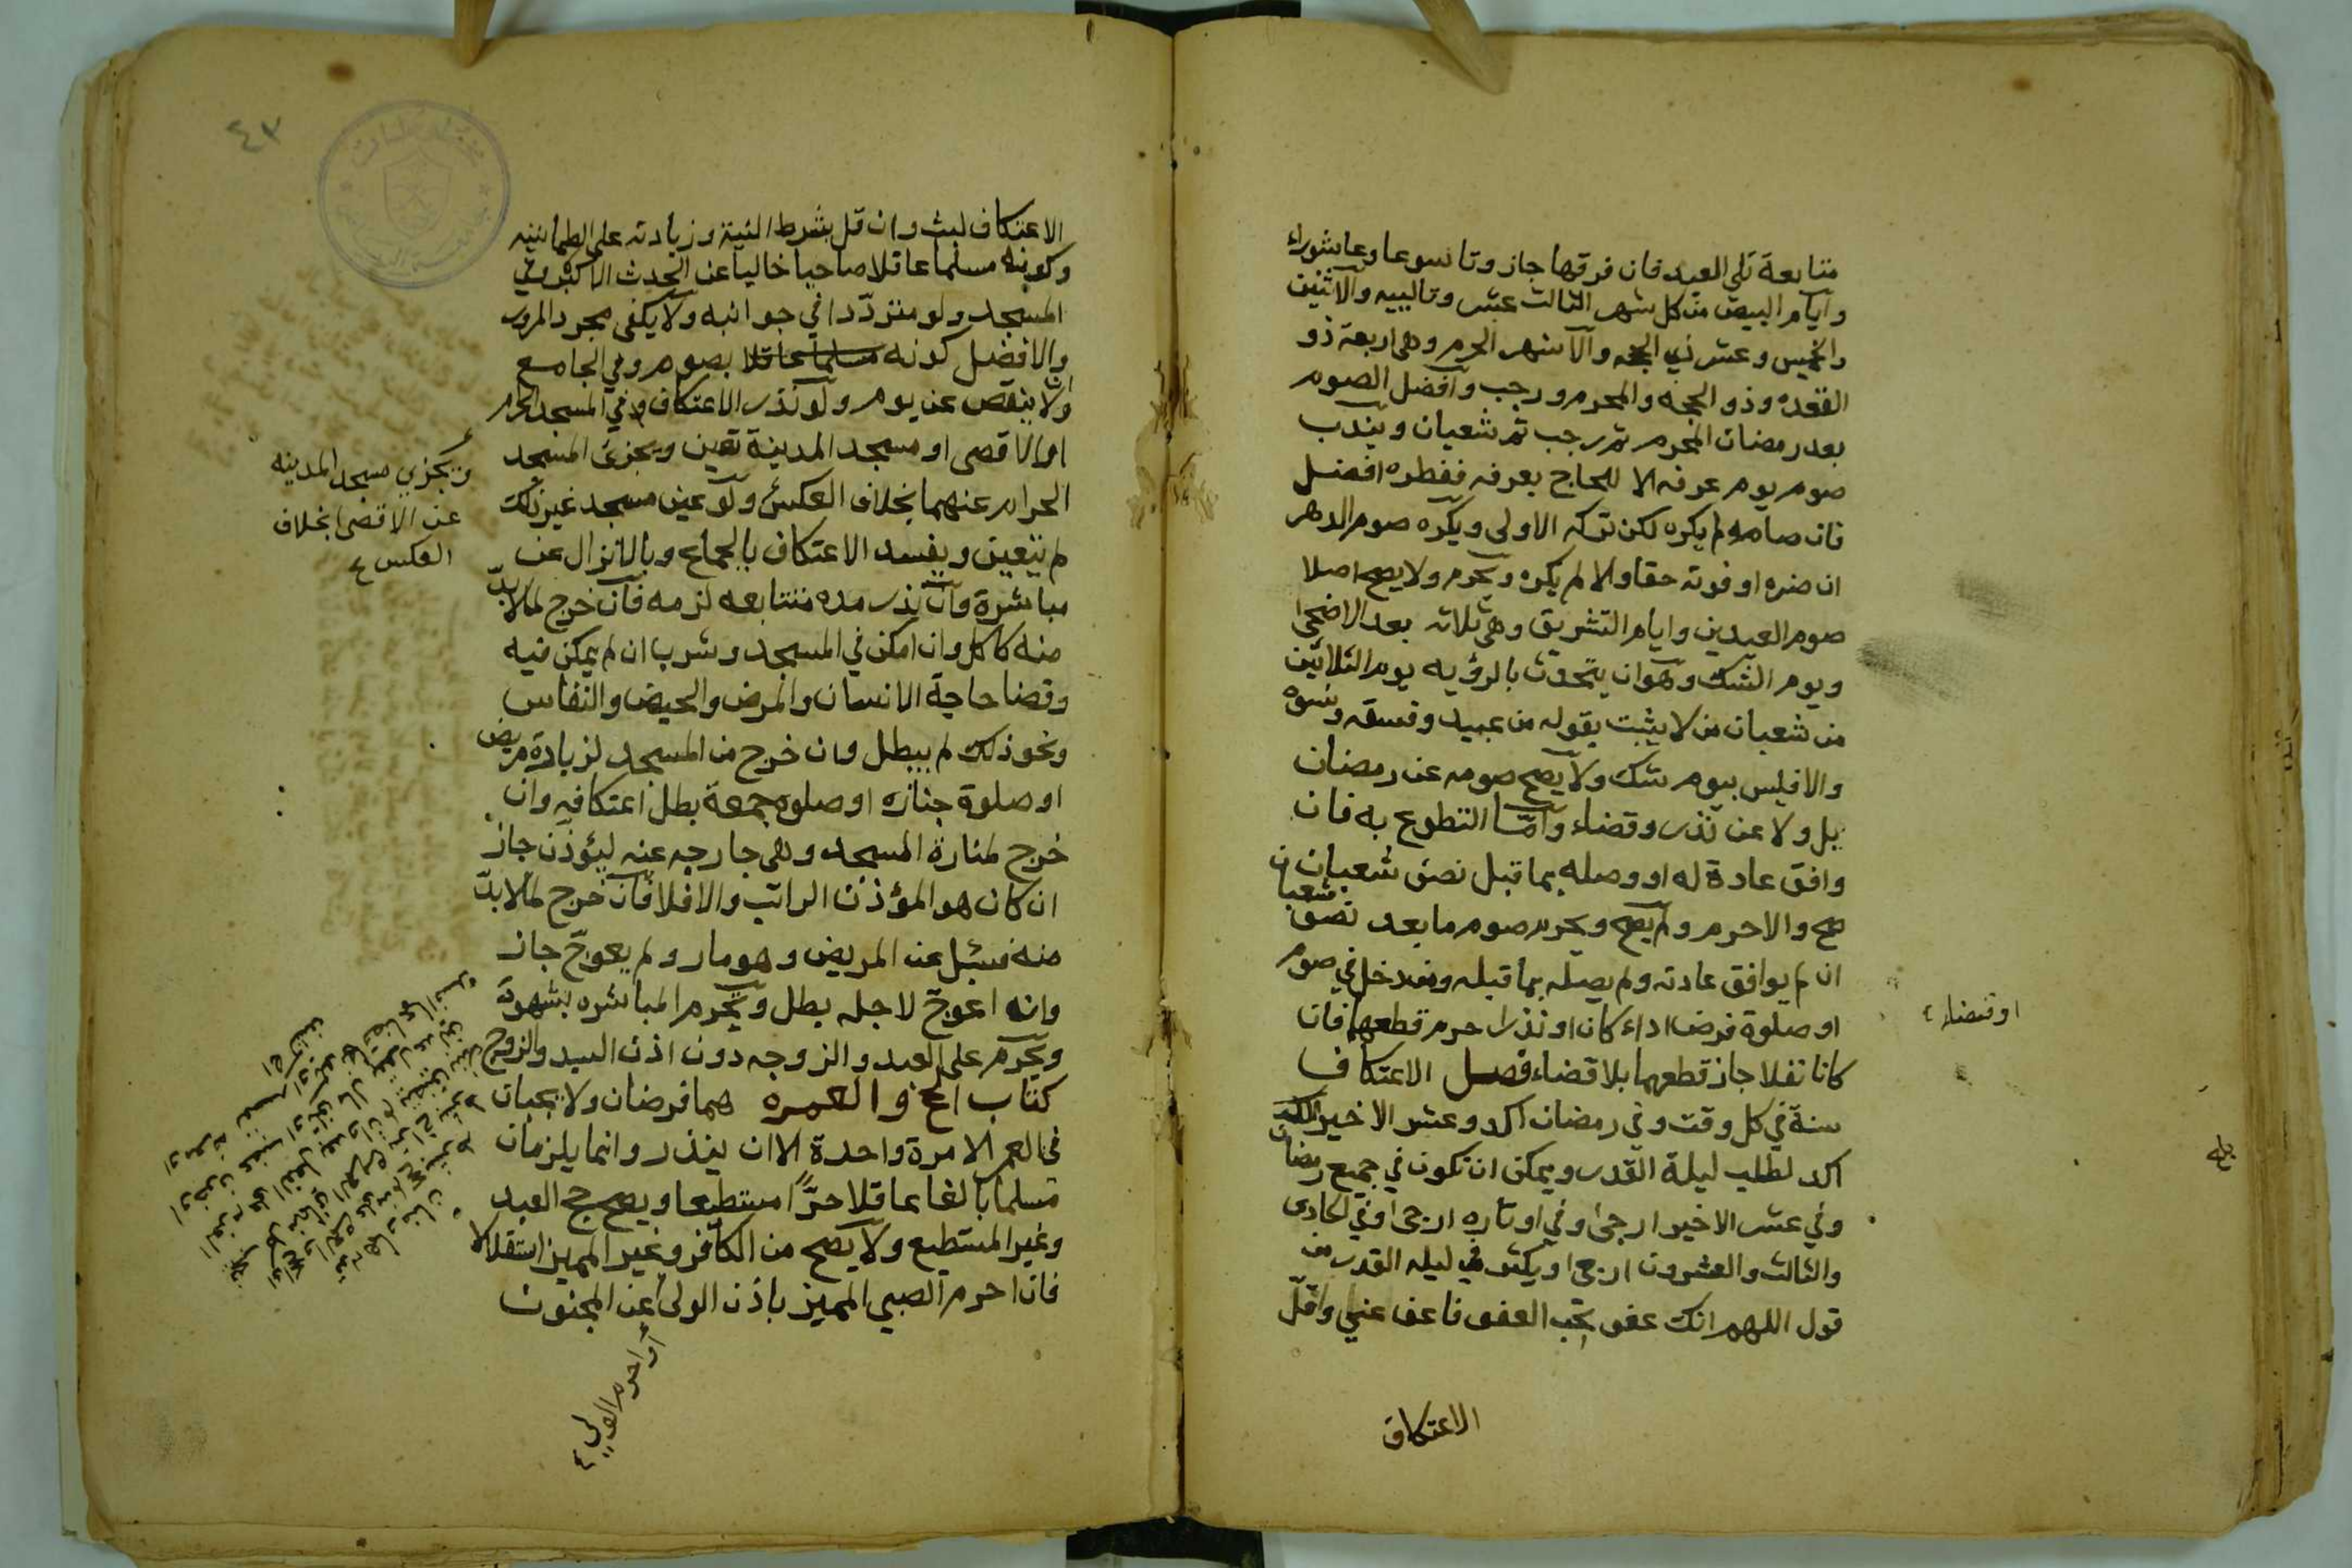 متتابعة تلي العيد فان فرقها جاز وتاسوعا وعاشوراء
وايام البيض من كل شهر الثالث عشر وتالييه والاثنين
والخميس وعشر ذي الحجه والاشهر الحرم وهي اربعة ذو
القعده وذو الحجه والمحرم ورجب وافضل الصوم
بعد رمضان المحرم ثم رجب ثم شعبان ويندب
صوم يوم عرفه الا للحاج بعرفه ففطره افضل
فان صامه لم يكره لكن تركه الاولى ويكره صوم الدهر
ان ضره او فوته حقا والا لم يكره ويحرم ولا يصح اصلا
صوم العيدين وايام التشريق وهي ثلاثه بعد الاضحى
ويوم الشك وهو ان يتحدث بالرؤيه يوم الثلاثين
من شعبان من لا يثبت بقوله من عبيد وفسقه ونسوه
والا فليس بيوم شك ولا يصح صومه عن رمضان
بل ولا عن نذر وقضاء واما التطوع به فان
وافق عادة له او وصله بما قبل نصف شعبان
صح والا حرم ولم يصح ويحرم صوم ما بعد نصف شعبان
ان لم يوافق عادته ولم يصله بما قبله ومن دخل في صوم
او صلوة فرض اداء كان او نذرا حرم قطعهما فان
او قضاء
كانا نفلا جاز قطعهما بلا قضاء فصل الاعتكاف
سنة في كل وقت وفي رمضان اكد وعشر الاخير
اكد لطلب ليلة القدر ويمكن ان تكون في جميع رمضان
وفي عشر الاخير ارجى وفي اوتاره ارجى وفي الحادي
والثالث والعشرون ارجى ويكثر في ليله القدر من
قول اللهم انك عفو تحب العفو فاعف عني واقل
الاعتكاف
٤٢
الاعتكاف لبث وان قل بشرط النية وزيادته على الطمانينه
وكونه مسلما عاقلا صاحيا خاليا عن الحدث الاكبر وفي
المسجد ولو مترددا في جوانبه ولا يكفي مجرد المرور
والافضل كونه مسلما عاقلا بصوم وفي الجامع
والا ينقص عن يوم ولو نذر الاعتكاف في المسجد الحرام
او الاقصى او مسجد المدينة تعين ويجزئ المسجد
الحرام عنهما بخلاف العكس ولو عين مسجد غير ذلك
ويجزي مسجد المدينه
عن الاقصى بخلاف
العكس
لم يتعين ويفسد الاعتكاف بالجماع وبالانزال عن
مباشرة وان نذر مده متتابعه لزمه فان خرج لما لا بد
منه كاكل وان امكن في المسجد وشرب ان لم يمكن فيه
وقضا حاجة الانسان والمرض والحيض والنفاس
ونحو ذلك لم يبطل وان خرج من المسجد لزيارة مريض
او صلوة جنازه او صلوه جمعة بطل اعتكافه وان
خرج لمنارة المسجد وهي خارجه عنه ليؤذن جاز
ان كان هو المؤذن الراتب والا فلا فان خرج لما لا بد
منه فسئل عن المريض وهو مار ولم يعوج جاز
وان اعوج لاجله بطل ويحرم المباشره بشهوة
ويحرم على العبد والزوجه دون اذن السيد والزوج
كتاب الحج والعمره هما فرضان ولا يجبان
في العمر الا مرة واحدة الا ان ينذر وانما يلزمان
مسلما بالغا عاقلا حرا مستطيعا ويصح حج العبد
وغير المستطيع ولا يصح من الكافر وغير المميز استقلالا
فان احرم الصبي المميز باذن الولي عن المجنون
او احرم الولي